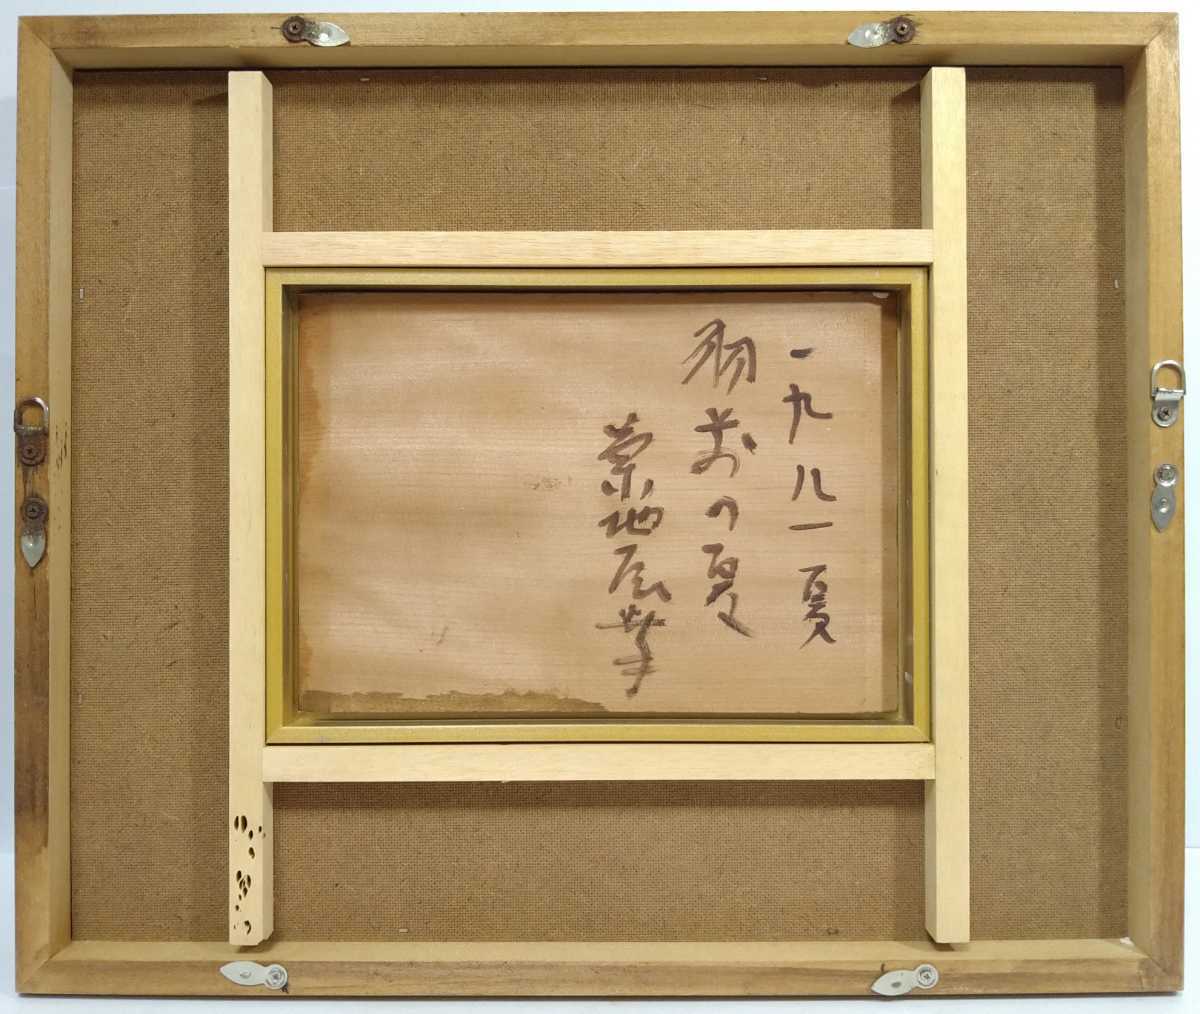 一九八一夏
羽前の夏
菊地辰幸